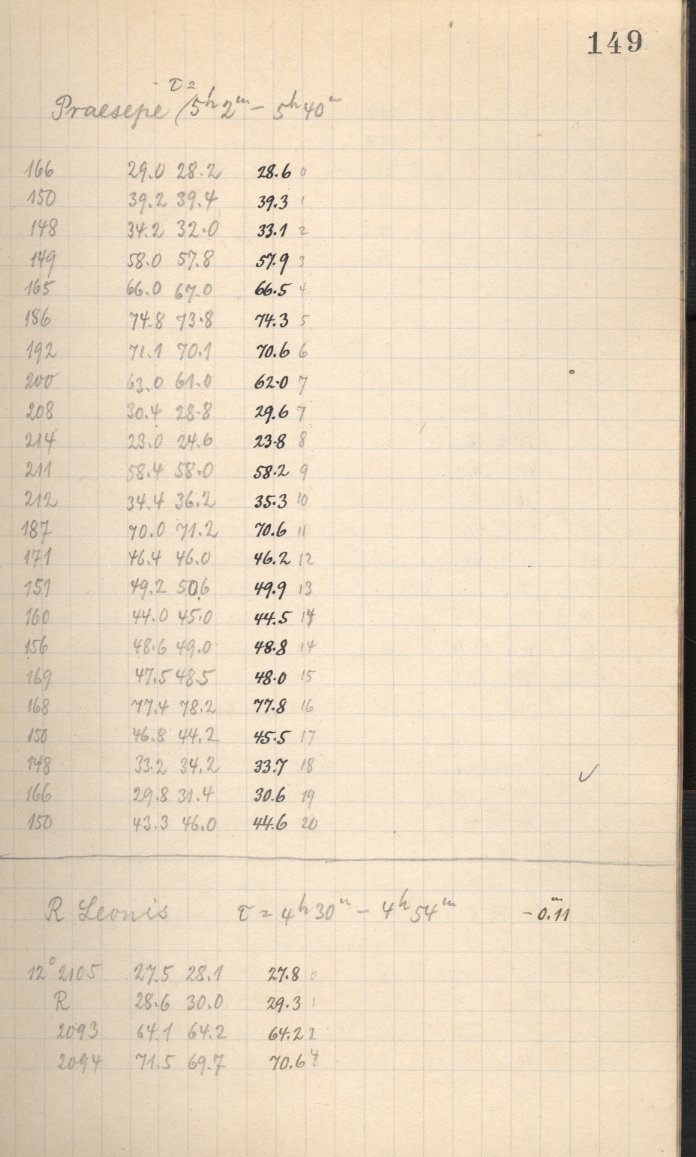 149
τ =
Praesepe (5h 2m – 5h 40m
166 29.0 28.2 28.6 0
150 39.2 39.4 39.3 1
148 34.2 32.0 33.1 2
149 58.0 57.8 57.9 3
165 66.0 67.0 66.5 4
186 74.8 73.8 74.3 5
192 71.1 70.1 70.6 6
200 63.0 61.0 62.0 7
208 30.4 28.8 29.6 7
214 23.0 24.6 23.8 8
211 58.4 58.0 58.2 9
212 34.4 36.2 35.3 10
187 70.0 71.2 70.6 11
171 46.4 46.0 46.2 12
151 49.2 50.6 49.9 13
160 44.0 45.0 44.5 14
156 48.6 49.0 48.8 14
169 47.5 48.5 48.0 15
168 77.4 78.2 77.8 16
150 46.8 44.2 45.5 17
148 33.2 34.2 33.7 18
166 29.8 31.4 30.6 19
150 43.3 46.0 44.6 20
R Leonis τ = 4h 30m – 4h 54m – 0.m11
12° 2105 27.5 28.1 27.8 0
R 28.6 30.0 29.3 1
2093 64.1 64.2 64.2 2
2094 71.5 69.7 70.6